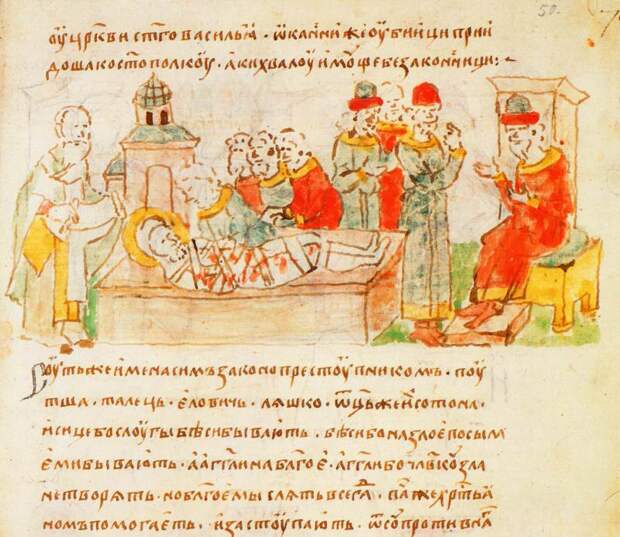 50
оу цркви ст҃го васильꙗ · ѡканнии же оубиици прии
доша к ст҃ополкоу, аки хвалоу имоуще безаконници :
Соуть же имена симъ законопрестоупникомъ · поу
тша · талець · еловичь · лѧшко · ѿц҃ь же и сотона ·
и сице бо слоугы бѣси бывають · бѣси бо на злое посыл
еми бывають · а аг҃гли на благ҃ое · аг҃гли бо чл҃вкоу зла
не творѧть · но благое мыслѧть всегда · 
номъ помогаеть · и застоупають ѿ соупротивна